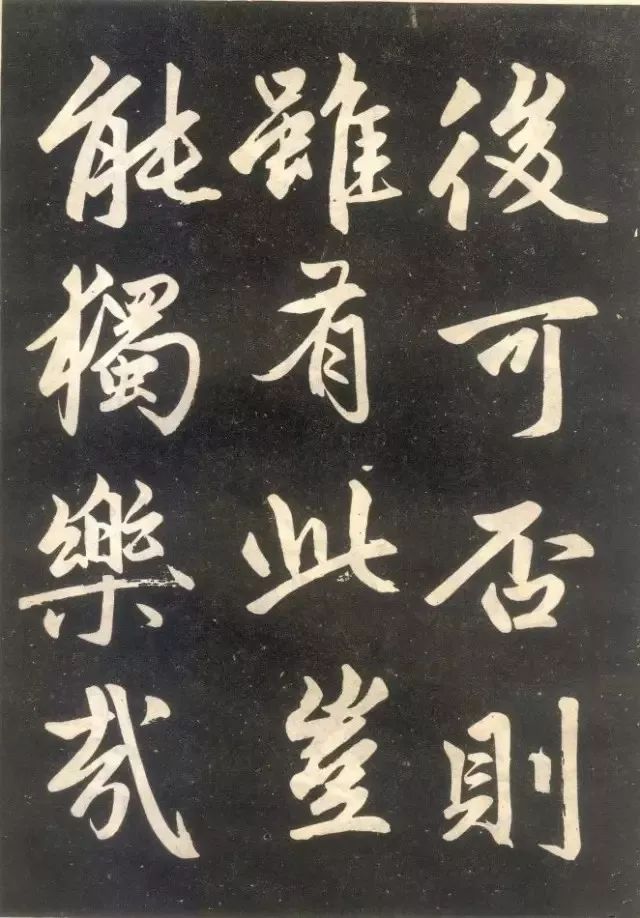 後可否則
雖有此豈
能獨樂哉